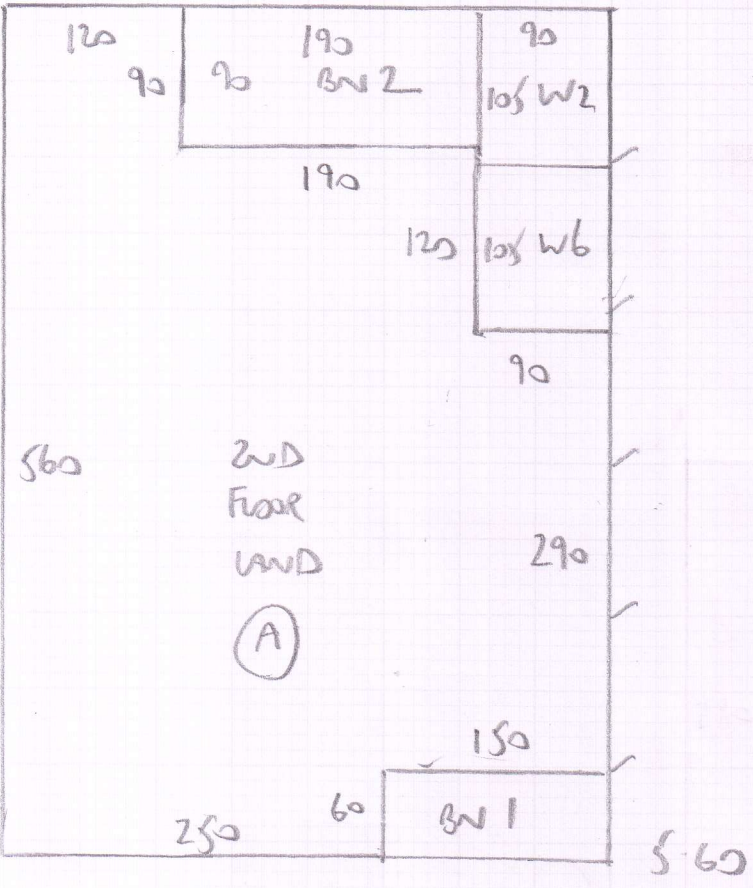 120
190
90
90
90
BN 2
105 W2
190
120
105 W6
90
560
2ND
FLOOR
LAND
290
A
150
60
BN 1
250
5.60